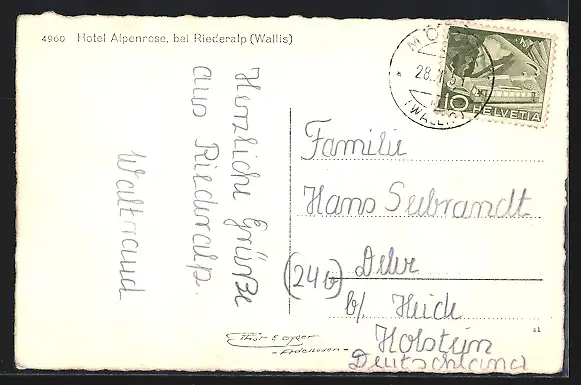 4960 Hotel Alpenrose, bei Riederalp (Wallis)
Herzliche Grüße
aus Riederalp.
Waltraud
MÖ
28.
(WALLIS)
10 HELVETIA
Familie
Hans Seebrandt
(24b)
b/ Heide
Holstein
Deutschland